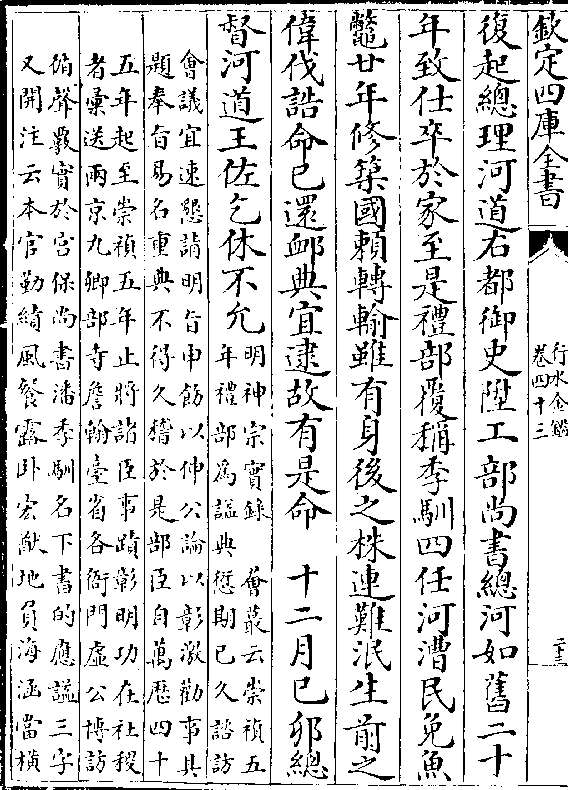 欽定四庫全書
行水金鑑
卷四十三
二十三
復起總理河道右都御史陞工部尚書總河如舊二十
年致仕卒於家至是禮部覆稱季馴四任河漕民免魚
鼈廿年修築國賴轉輸雖有身後之株連難泯生前之
偉伐誥命已還卹典宜逮故有是命　十二月己卯總
督河道王佐乞休不允
明神宗實錄　薈蕞云崇禎五
年禮部為諡典愆期已久諮訪
會議宜速懇請明旨申飭以伸公論以彰激勸事具
題奉旨易名重典不得久稽於是部臣自萬歷四十
五年起至崇禎五年止將諸臣事蹟彰明功在社稷
者彙送兩京九卿部寺詹翰臺省各衙門虛公博訪
循聲覈實於宮保尚書潘季馴名下書的應諡三字
又開注云本官勤績風餐露卧宏猷地負海涵當橫